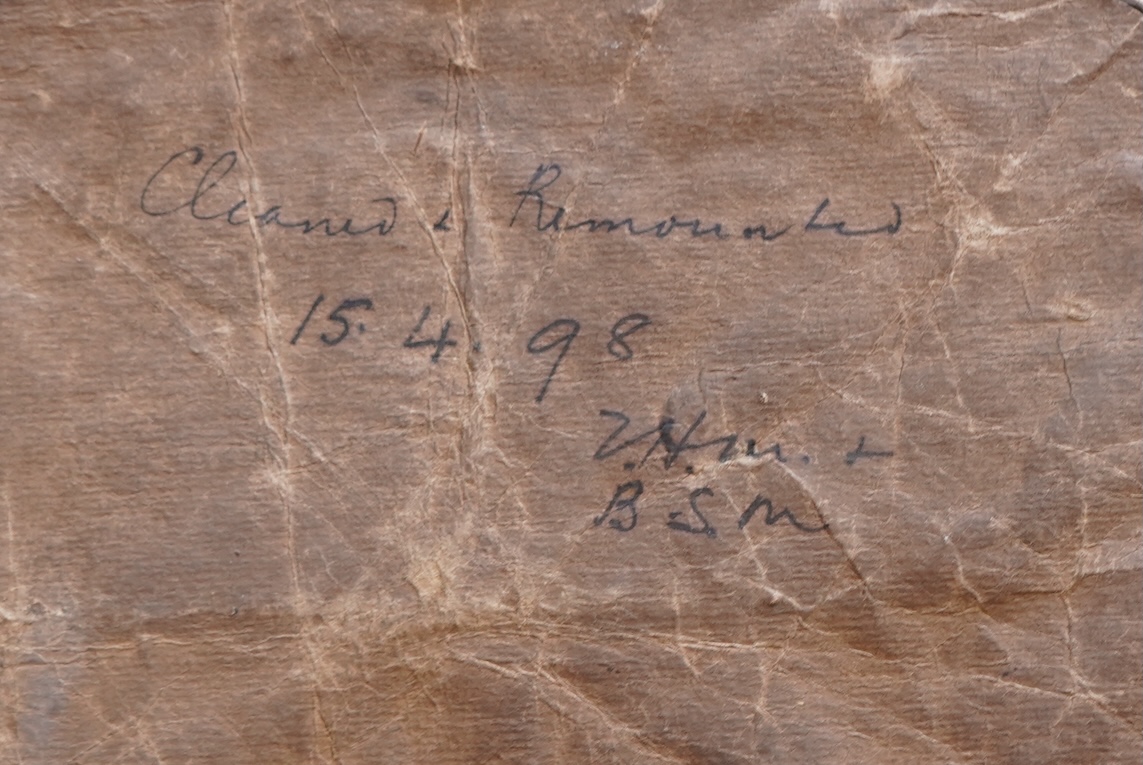 Cleaned & Remounted
15. 4. 98
V.H.M. &
B.S.M